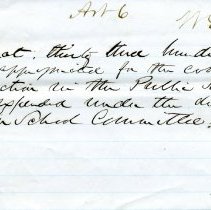 Art 6
ot. thirty three hund
appropriated for the co
ction in the Public S
expended under the di
r School Committee